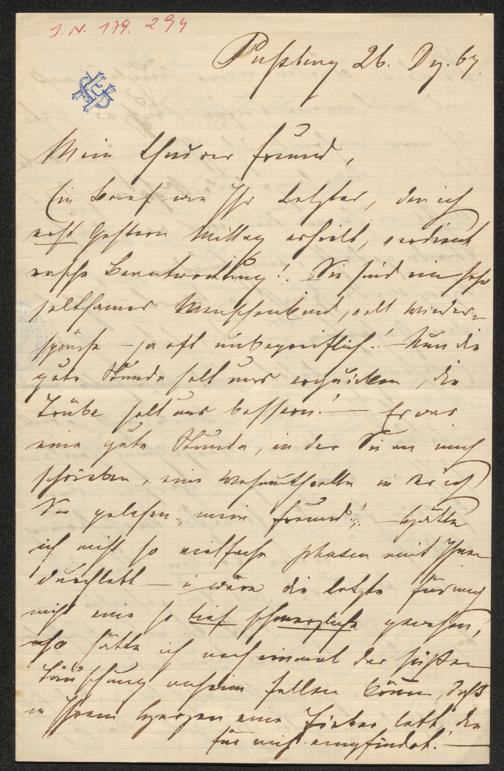 I. N. 179. 294
Preßburg 26. Dez. 67.
Mein theurer Freund,
Ein Brief wie Ihr letzter, den ich
erst gestern Mittag erhielt, erheischt
rasche Beantwortung! Sie sind ein sehr
seltsames Menschenkind, voll Wieder-
sprüche – so oft unbegreiflich! Nun die
gute Stunde soll uns erquicken, die
Trübe soll uns bessern! – Es war
eine gute Stunde, in der Sie an mich
schrieben, eine
Sie gelesen, mein Freund! – Hätte
ich nicht so vielfache Phasen mit Ihnen
durchlebt – u wäre die letzte für mich
nicht eine so tief schmerzliche gewesen,
so hätte ich noch einmal der süßen
Täuschung anheim fallen können, daß
in Ihrem Herzen eine Fieber lebt, die
für mich empfindet! –